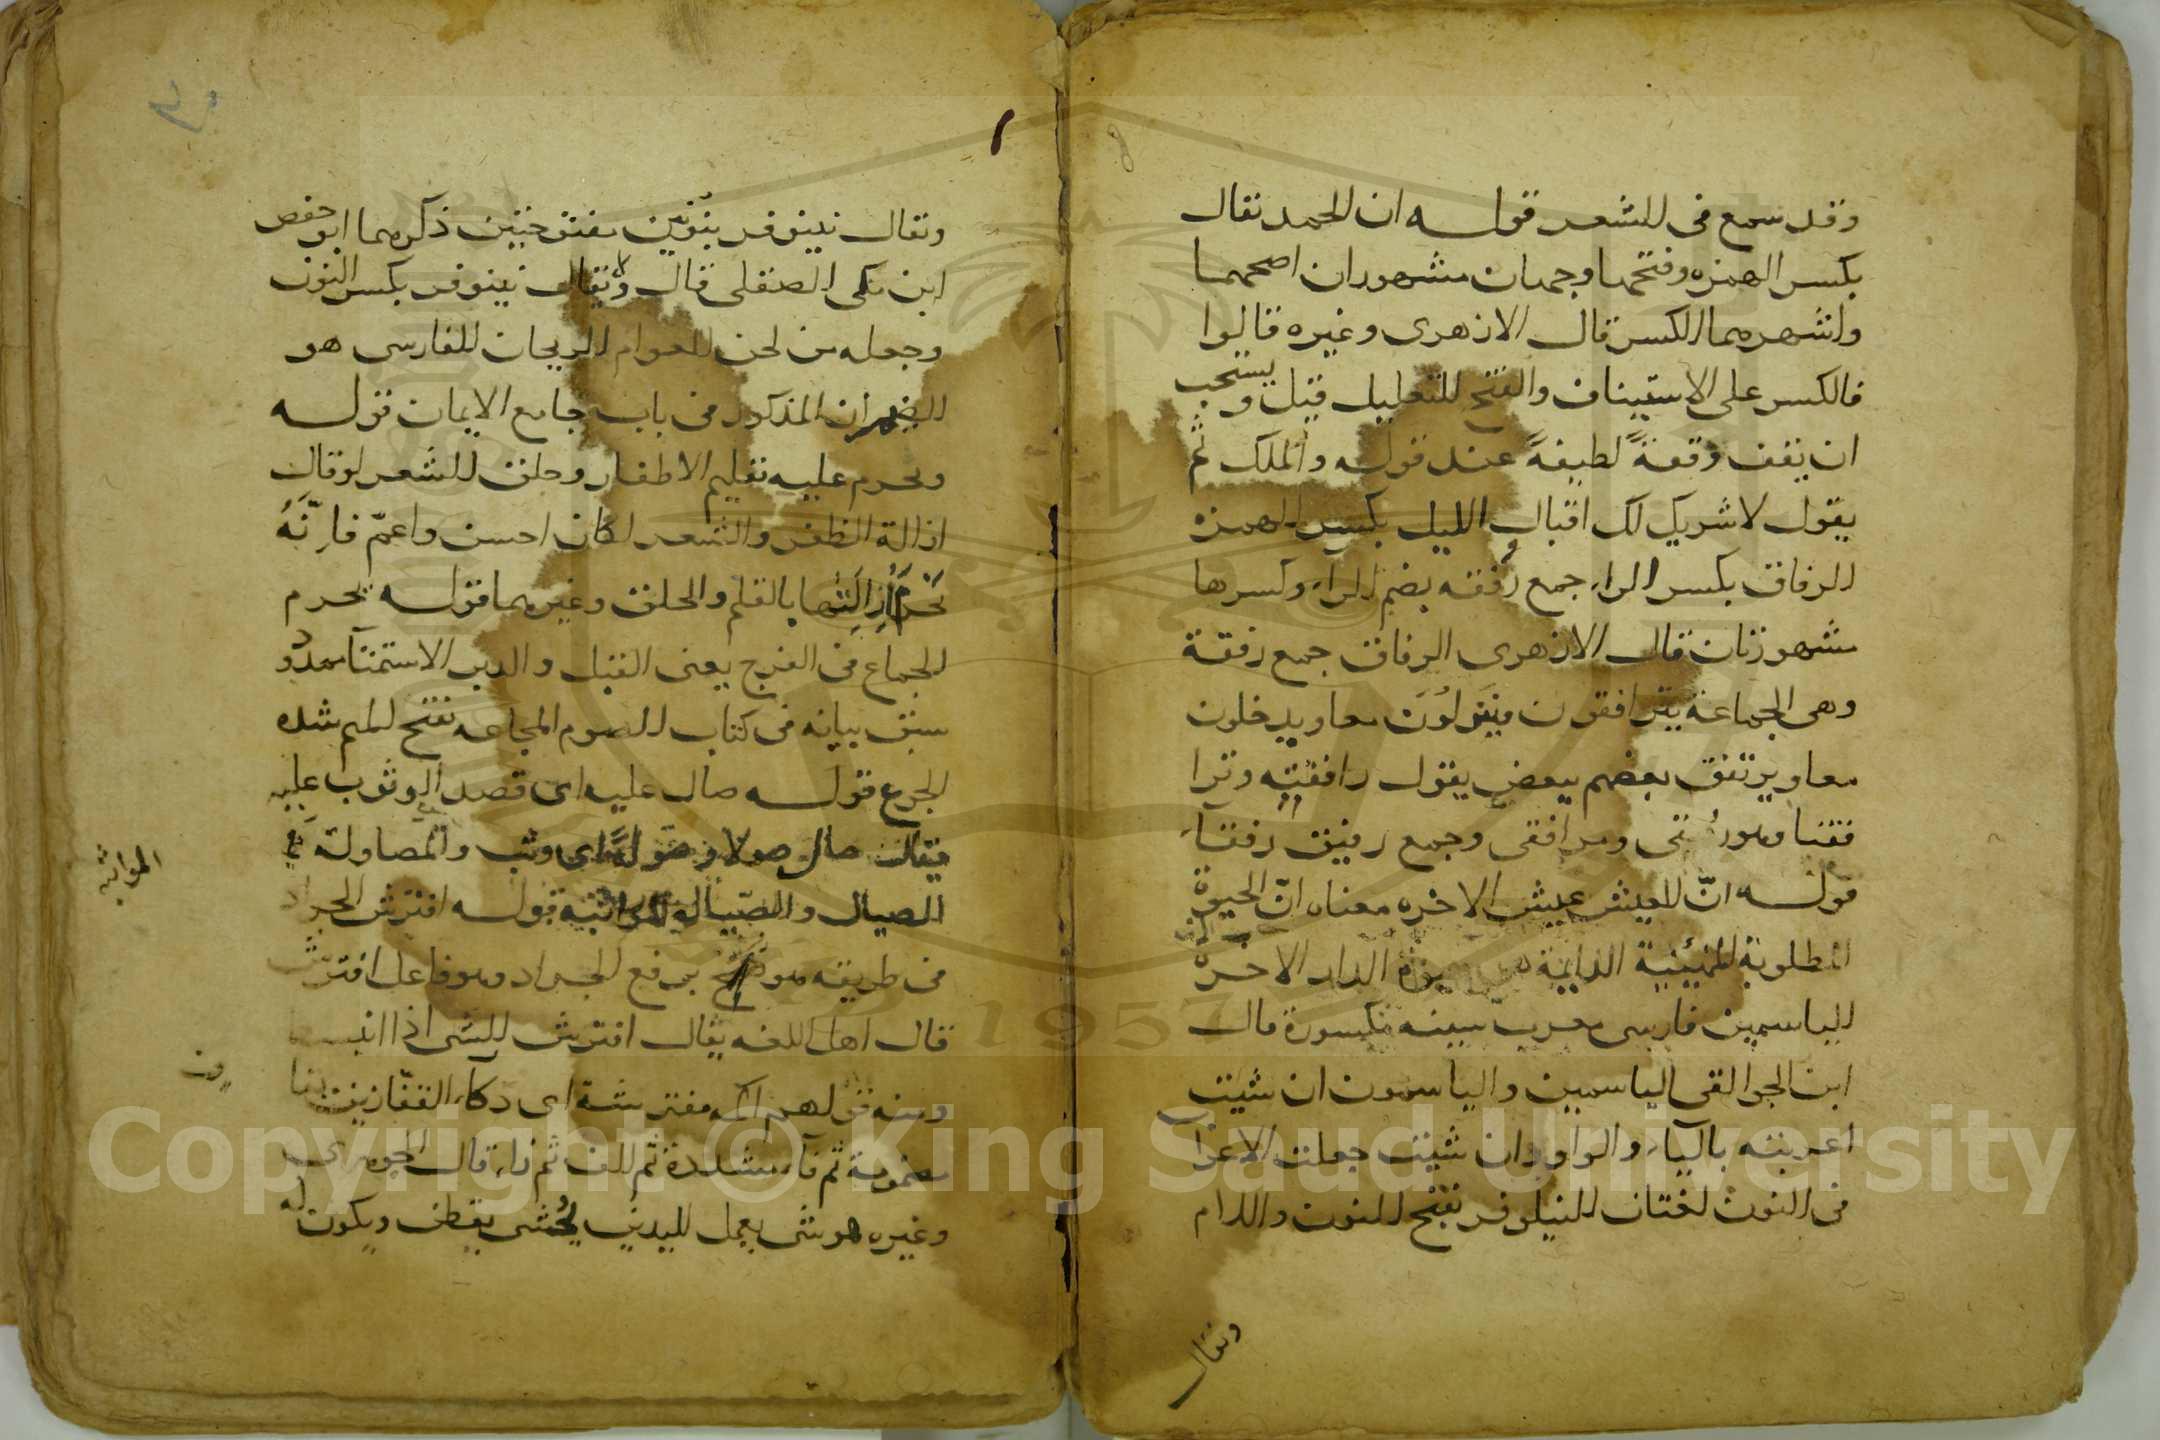 وقد سمع في الشعر قوله ان الحمد يقال
بكسر الهمزه وفتحها وجهان مشهوران اصحهما
واشهرهما الكسر قال الازهرى وغيره قالوا
فالكسر على الاستيناف والفتح للتعليل قيل ويستحب
ان يقف وقفةً لطيفةً عند قوله والملك ثم
يقول لا شريك لك اقبال الليل بكسر الهمزه
الرفاق بكسر الراء جمع رُفقه بضم الراء وكسرها
مشهورتان قال الازهرى الرفاق جمع رفقة
وهى الجماعة يترافقون فينزلون معا ويدخلون
معا ويرتفق بعضهم ببعض يقول رافقته وترا
فقنا وهو رفيقى ومرافقى وجمع رفيق رفقاء
قوله انّ العيش عيش الاخره معناه انّ الحيوة
المطلوبة الهنيئية الدايمة هى حيوة الدار الاخرة
الياسمين فارسى معرب سينه مكسورة قال
ابن الجواليقى الياسمين والياسمون ان شيت
اعربته بالياء والواو وان شيت جعلت الاعراب
فى النون لغتان النيلوفر بفتح النون واللام
ويقال
ويقال نينوفر بنونين مفتوحتين ذكرهما ابو حفص
ابن مكى الصقلى قال ولا يقال نينوفر بكسر النون
وجعله من لحن العوام الريحان الفارسى هو
الضيمران المذكور فى باب جامع الايمان قوله
ويحرم عليه تقليم الاظفار وحلق الشعر لو قال
ازالة الظفر والشعر لكان احسن واعمّ فاِنّهُ
تحرم اِزالتها بالقلم والحلق وغيرهما قوله يحرم
الجماع فى الفرج يعنى القبل والدبر الاستمنآ ممدود
سبق بيانه فى كتاب الصوم المجاعه بفتح الميم شده
الجوع قوله صال عليه اى قصد الوثوب عليه
فيقال صال صولا وصَولةً اى وثب والمصاولة
الصيال والصّيالة المواثبة قوله افترش الجراد
المواثبه
فى طريقه هو برفع الجراد وهو فاعل افترش
قال اهل اللغه يقال افترش الشى اذا انبسط
ومنه قولهم اكمه مفترشة اى دكاء القفّازين
مضمومة ثم فآء مشددة ثم الف ثم زاء قال الجوهرى
وغيره هو شى يعمل لليدين يُحشى بقطن ويكون له